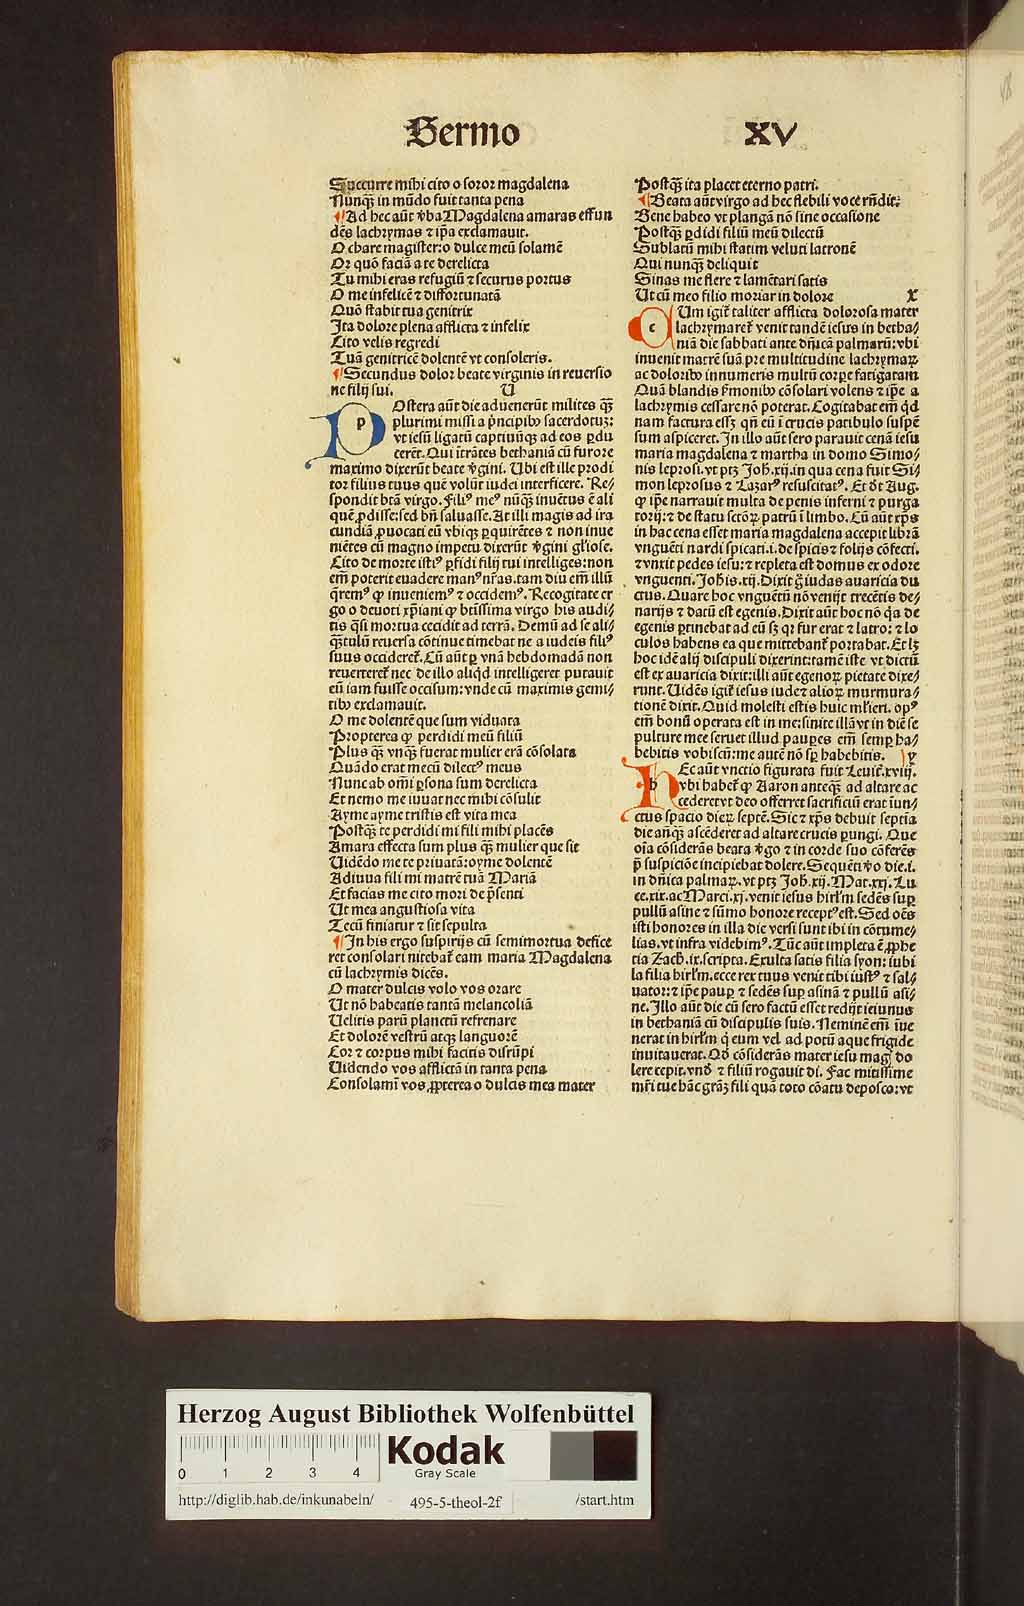 Sermo XV
Succurre mihi cito o soror magdalena
Nunq̃ in mũdo fuit tanta pena
¶ Ad hec aũt v̓ba Magdalena amaras effun
dẽs lachrymas ⁊ ip̃a exclamauit.
O chare magister: o dulce meũ solamẽ
Or quo faciã a te derelicta
Tu mihi eras refugiũ ⁊ securus portus
O me infelicẽ ⁊ diffortunatã
Quõ stabit tua genitrix
Ita dolore plena afflicta ⁊ infelix
Cito velis regredi
Tuã genitricẽ dolentẽ vt consoleris.
¶ Secundus dolor beate virginis in reuersio
ne filij sui. V
POstera aũt die aduenerũt milites q̃ȝ
plurimi missi a p̃ncipibꝰ sacerdotuȝ:
vt iesũ ligatũ captiuũqȝ ad eos ꝑdu
cerẽt. Qui ĩtrãtes bethaniã cũ furore
maximo dixerũt beate v̓gini. Ubi est ille prodi
tor filius tuus quẽ volũt iudei interficere. Re⸗
spondit btã virgo. Filiꝰ meꝰ nũq̃ȝ inuẽtus ẽ ali
quẽ ꝓdisse: sed bñ saluasse. At illi magis ad ira
cundiã ꝓuocati eũ vbiqȝ ꝑquirẽtes ⁊ non inue
niẽtes cũ magno impetu dixerũt v̓gini gl̓iose.
Cito de morte istiꝰ ꝑfidi filij tui intelliges: non
em̃ poterit euadere manꝰ nr̃as. tam diu em̃ illũ
q̃remꝰ ꝙ inueniemꝰ ⁊ occidemꝰ. Recogitate er
go o deuoti xp̃iani ꝙ btĩssima virgo his audi⸗
tis q̃si mortua cecidit ad terrã. Demũ ad se ali⸗
q̃ȝtulũ reuersa cõtinue timebat ne a iudeis filiꝰ
suus occideret̃. Cũ aũt ꝑ vnã hebdomadã non
reuerteret̃ nec de illo aliq̃d intelligeret putauit
eũ iam fuisse occisum: vnde cũ maximis gemi⸗
tibꝰ exclamauit.
O me dolentẽ que sum viduata
Propterea ꝙ perdidi meũ filiũ
Plus q̃ȝ vnq̃ȝ fuerat mulier erã cõsolata
Quãdo erat mecũ dilectꝰ meus
Nunc ab om̃i ꝑsona sum derelicta
Et nemo me iuuat nec mihi cõsulit
Ayme ayme tristis est vita mea
Postq̃ȝ te perdidi mi fili mihi placẽs
Amara effecta sum plus q̃ȝ mulier que sit
Uidẽdo me te priuatã: oyme dolentẽ
Adiuua fili mi matrẽ tuã Mariã
Et facias me cito mori de p̃senti
Ut mea angustiosa vita
Tecũ finiatur ⁊ sit sepulta
¶ In his ergo suspirijs cũ semimortua defice
ret consolari nitebat̃ eam maria Magdalena
cũ lachrymis dicẽs.
O mater dulcis volo vos orare
Ut nõ habeatis tantã melancoliã
Uelitis parũ planctũ refrenare
Et dolorẽ vestrũ atqȝ languorẽ
Cor ⁊ corpus mihi facitis disrũpi
Uidendo vos afflictã in tanta pena
Consolam̃ vos, ꝓpterea o dulcis mea mater
Postq̃ȝ ita placet eterno patri.
¶ Beata aũt virgo ad hec flebili voce rñdit:
Bene habeo vt plangã nõ sine occasione
Postq̃ȝ ꝑdidi filiũ meũ dilectũ
Sublatũ mihi statim veluti latronẽ
Qui nunq̃ȝ deliquit
Sinas me flere ⁊ lamẽtari satis
Ut cũ meo filio moriar in dolore X
CUm igit̃ taliter afflicta dolorosa mater
lachrymaret̃ venit tandẽ iesus in betha⸗
niã die sabbati ante dñicã palmarũ: vbi
inuenit matrẽ suã pre multitudine lachrymaꝝ
ac doloribꝰ innumeris multũ corꝑe fatigatam
Quã blandis s̓monibꝰ cõsolari volens ⁊ ip̃e a
lachrymis cessare nõ poterat. Cogitabat em̃ q̃d
nam factura esset qñ eũ ĩ crucis patibulo suspẽ
sum aspiceret. In illo aũt sero parauit cenã iesu
maria magdalena ⁊ martha in domo Simo⸗
nis leprosi. vt ptȝ Joh̃. xij. in qua cena fuit Si⸗
mon leprosus ⁊ Lazarꝰ resuscitatꝰ. Et d̓t Aug.
ꝙ ip̃e narrauit multa de penis inferni ⁊ purga
torij: ⁊ de statu sctõꝝ patrũ ĩ limbo. Cũ aũt xp̃s
in hac cena esset maria magdalena accepit librã
vnguẽti nardi spicati. i. de spicis ⁊ folijs cõfecti.
⁊ vnxit pedes iesu: ⁊ repleta est domus ex odore
vnguenti. Johis. xij. Dixit g̊ iudas auaricia du
ctus. Quare hoc vnguẽtũ nõ venijt trecẽtis de⸗
narijs ⁊ datũ est egenis. Dixit aũt hoc nõ q̃a de
egenis ꝑtinebat ad eũ sȝ qꝛ fur erat ⁊ latro: ⁊ lo
culos habens ea que mittebant̃ portabat. Et lȝ
hoc idẽ alij discipuli dixerint: tamẽ iste vt dictũ
est ex auaricia dixit: illi aũt egenoꝝ pietate dixe⸗
runt. Uidẽs igit̃ iesus iude ⁊ alioꝝ murmura⸗
tionẽ dixit. Quid molesti estis huic ml̓ieri. opꝰ
em̃ bonũ operata est in me: sinite illã vt in diẽ se
pulture mee seruet illud pauꝑes em̃ semꝑ ha⸗
bebitis vobiscũ: me autẽ nõ sꝑ habebitis. Y
HEc aũt vnctio figurata fuit Leuit̃. xviij.
vbi habet̃ ꝙ Aaron anteq̃ȝ ad altare ac
cederetvt deo offerret sacrificiũ erat ĩun⸗
ctus spacio dieꝝ septẽ. Sic ⁊ xp̃s debuit septia
die añq̃ȝ ascẽderet ad altare crucis ꝑungi. Que
oĩa cõsiderãs beata v̓go ⁊ in corde suo cõferẽs
p̃ suspiciõe incipiebat dolere. Sequẽti v̓o die. i.
in dñica palmaꝝ. vt ptȝ Joh̃. xij. Mat. xxj. Lu
ce. xix. ac Marci. xj. venit iesus hirl̓m sedẽs suꝑ
pullũ asine ⁊ sũmo honore receptꝰ est. Sed oẽs
isti honores in illa die versi sunt ibi in cõtume⸗
lias. vt infra videbimꝰ. Tũc aũt impleta ẽ ꝓphe
tia Zach̃. ix. scripta. Exulta satis filia syon: iubi
la filia hirl̓m. ecce rex tuus venit tibi iustꝰ ⁊ sal⸗
uator: ⁊ ip̃e pauꝑ ⁊ sedẽs suꝑ asinã ⁊ pullũ asi⸗
ne. Illo aũt die cũ sero factũ esset redijt ieiunus
in bethaniã cũ discipulis suis. Neminẽ em̃ ĩue
nerat in hirl̓m q̇ eum vel ad potũ aque frigide
inuitauerat. Qd̓ cõsiderãs mater iesu mag̃ do
lere cepit. vnd̓ ⁊ filiũ rogauit di. Fac mitissime
mr̃i tue hãc gr̃aȝ fili quã toto cõatu deposco: vt
Herzog August Bibliothek Wolfenbüttel
0 1 2 3 4
Kodak
Gray Scale
http://diglib.hab.de/inkunabeln/ 495-5-theol-2f /start.htm